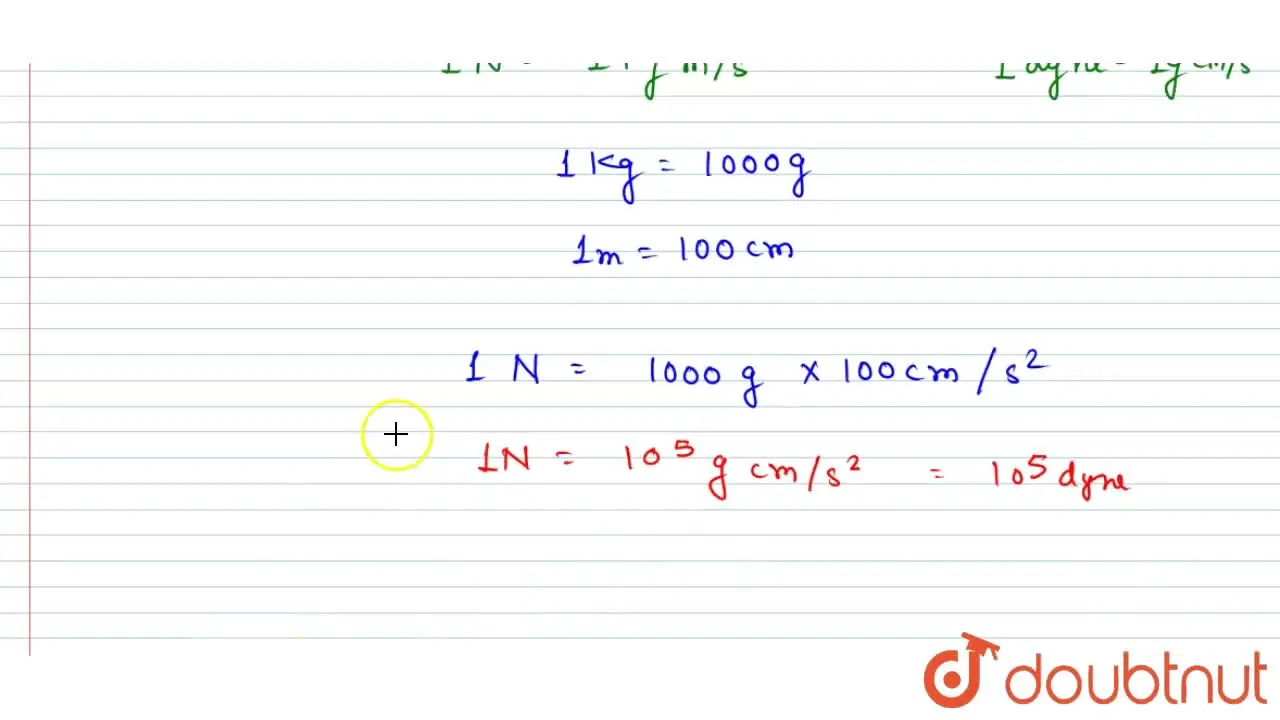 1 N = 1 Kg m/s 1 dyne = 1g cm/s
1 Kg = 1000g
1m = 100 cm
1 N = 1000 g × 100 cm / s²
1N = 10⁵ g cm/s² = 10⁵ dyne
doubtnut